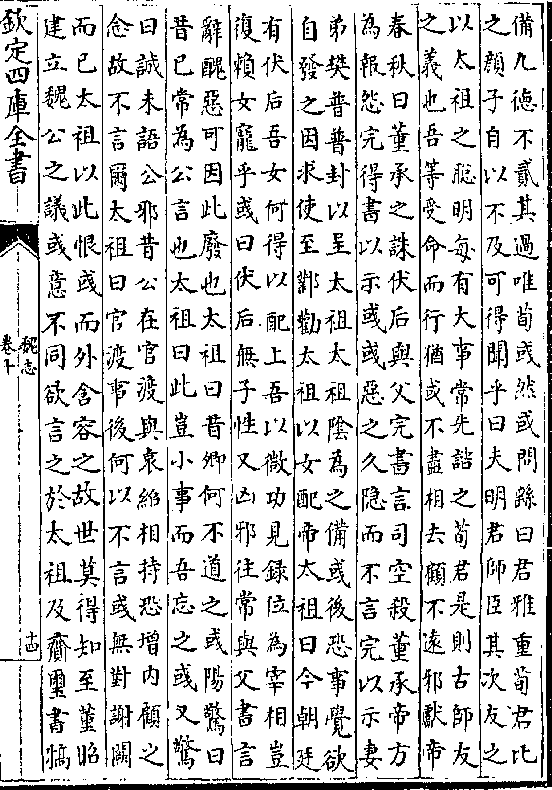 備九德不貳其過唯荀彧然或問繇曰君雅重荀君比
之顔子自以不及可得聞乎曰夫明君師臣其次友之
以太祖之聰明每有大事常先諮之荀君是則古師友
之義也吾等受命而行猶或不盡相去顧不遠邪獻帝
春秋曰董承之誅伏后與父完書言司空殺董承帝方
為報怨完得書以示彧彧惡之久隱而不言完以示妻
弟樊普普封以呈太祖太祖陰為之備彧後恐事覺欲
自發之因求使至鄴勸太祖以女配帝太祖曰今朝廷
有伏后吾女何得以配上吾以微功見錄位為宰相豈
復賴女寵乎彧曰伏后無子性又凶邪往常與父書言
辭醜惡可因此廢也太祖曰昔卿何不道之彧陽驚曰
昔已常為公言也太祖曰此豈小事而吾忘之彧又驚
曰誠未語公邪昔公在官渡與袁紹相持恐增内顧之
念故不言爾太祖曰官渡事後何以不言彧無對謝闕
而已太祖以此恨彧而外含容之故世莫得知至董昭
建立魏公之議彧意不同欲言之於太祖及齎璽書犒
欽定四庫全書
魏志
卷十
十四